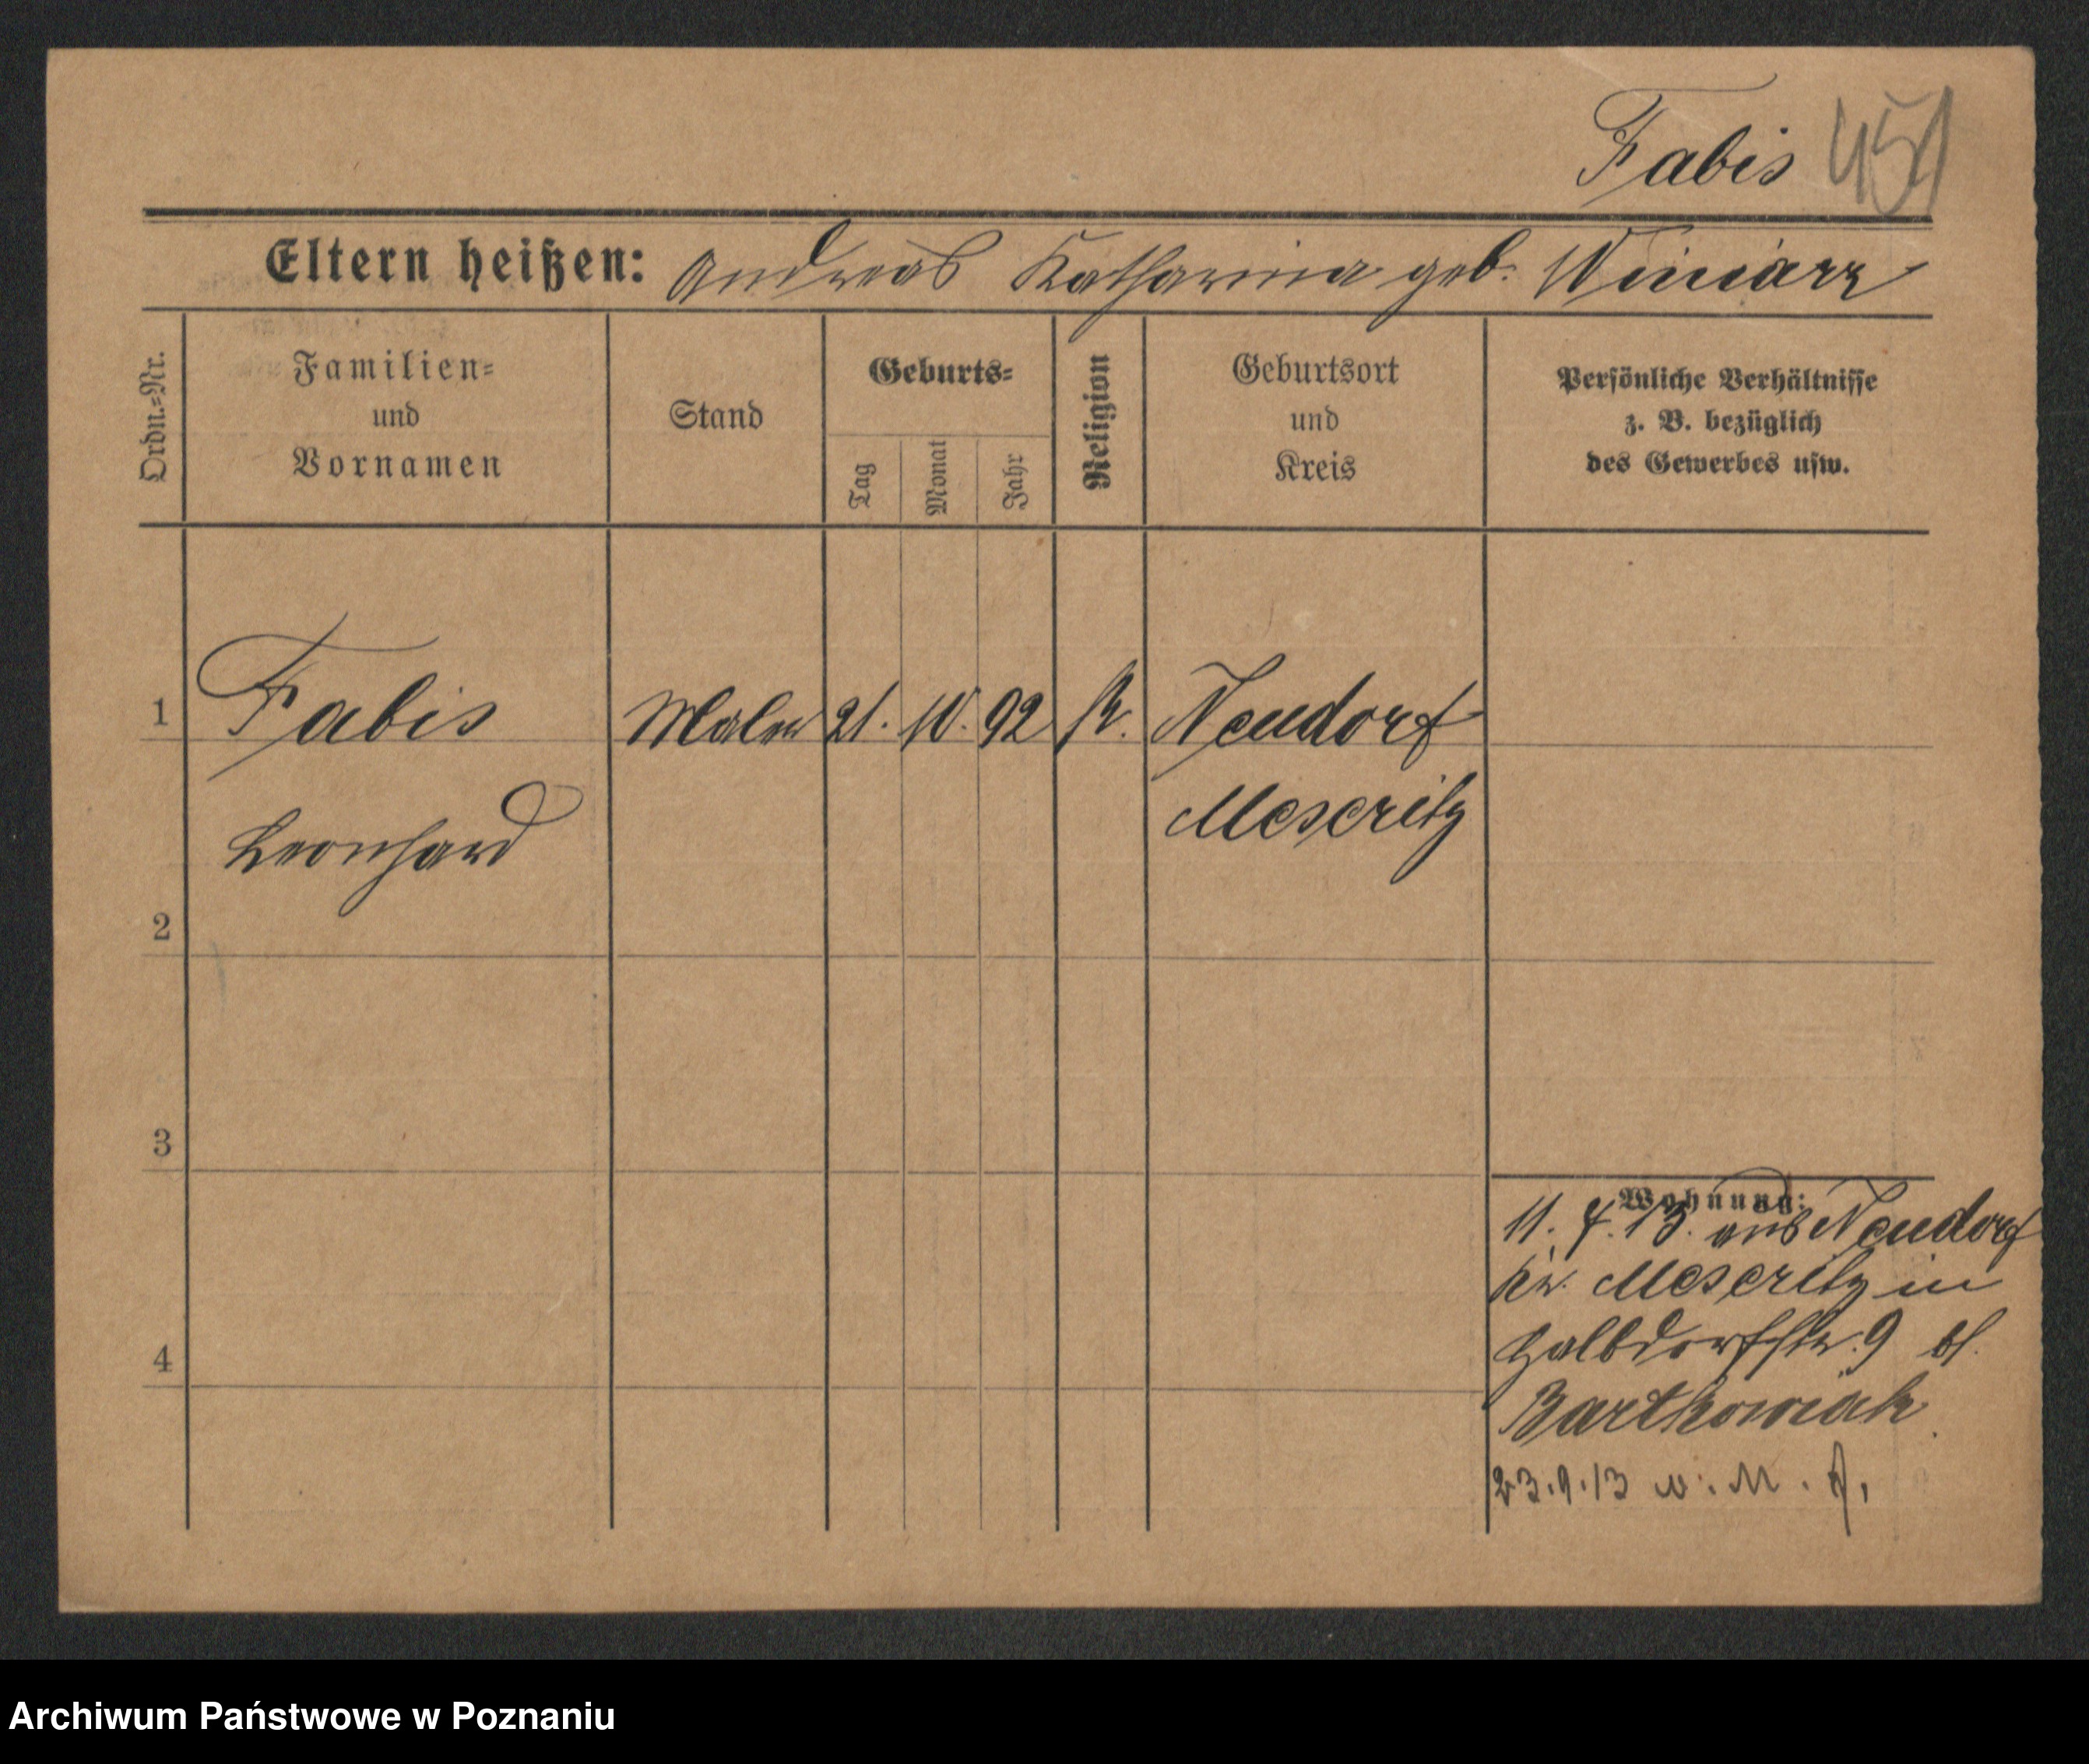 Fabis 451
Eltern heißen: Andreas Katharina geb. Winiarz
Ordn.-Nr.
Familien-
und
Vornamen
Stand
Geburts-
Tag
Monat
Jahr
Religion
Geburtsort
und
Kreis
Persönliche Verhältnisse
z. B. bezüglich
des Gewerbes usw.
1 Fabis Maler 21. 10. 92 k. Neudorf
Leonhard Meseritz
2
3
4
Wohnung:
11. 4. 13. aus Neudorf
Kr. Meseritz in
Halbdorfstr. 9 bf.
Bartkowiak
23.9.13 w. M. A.
Archiwum Państwowe w Poznaniu